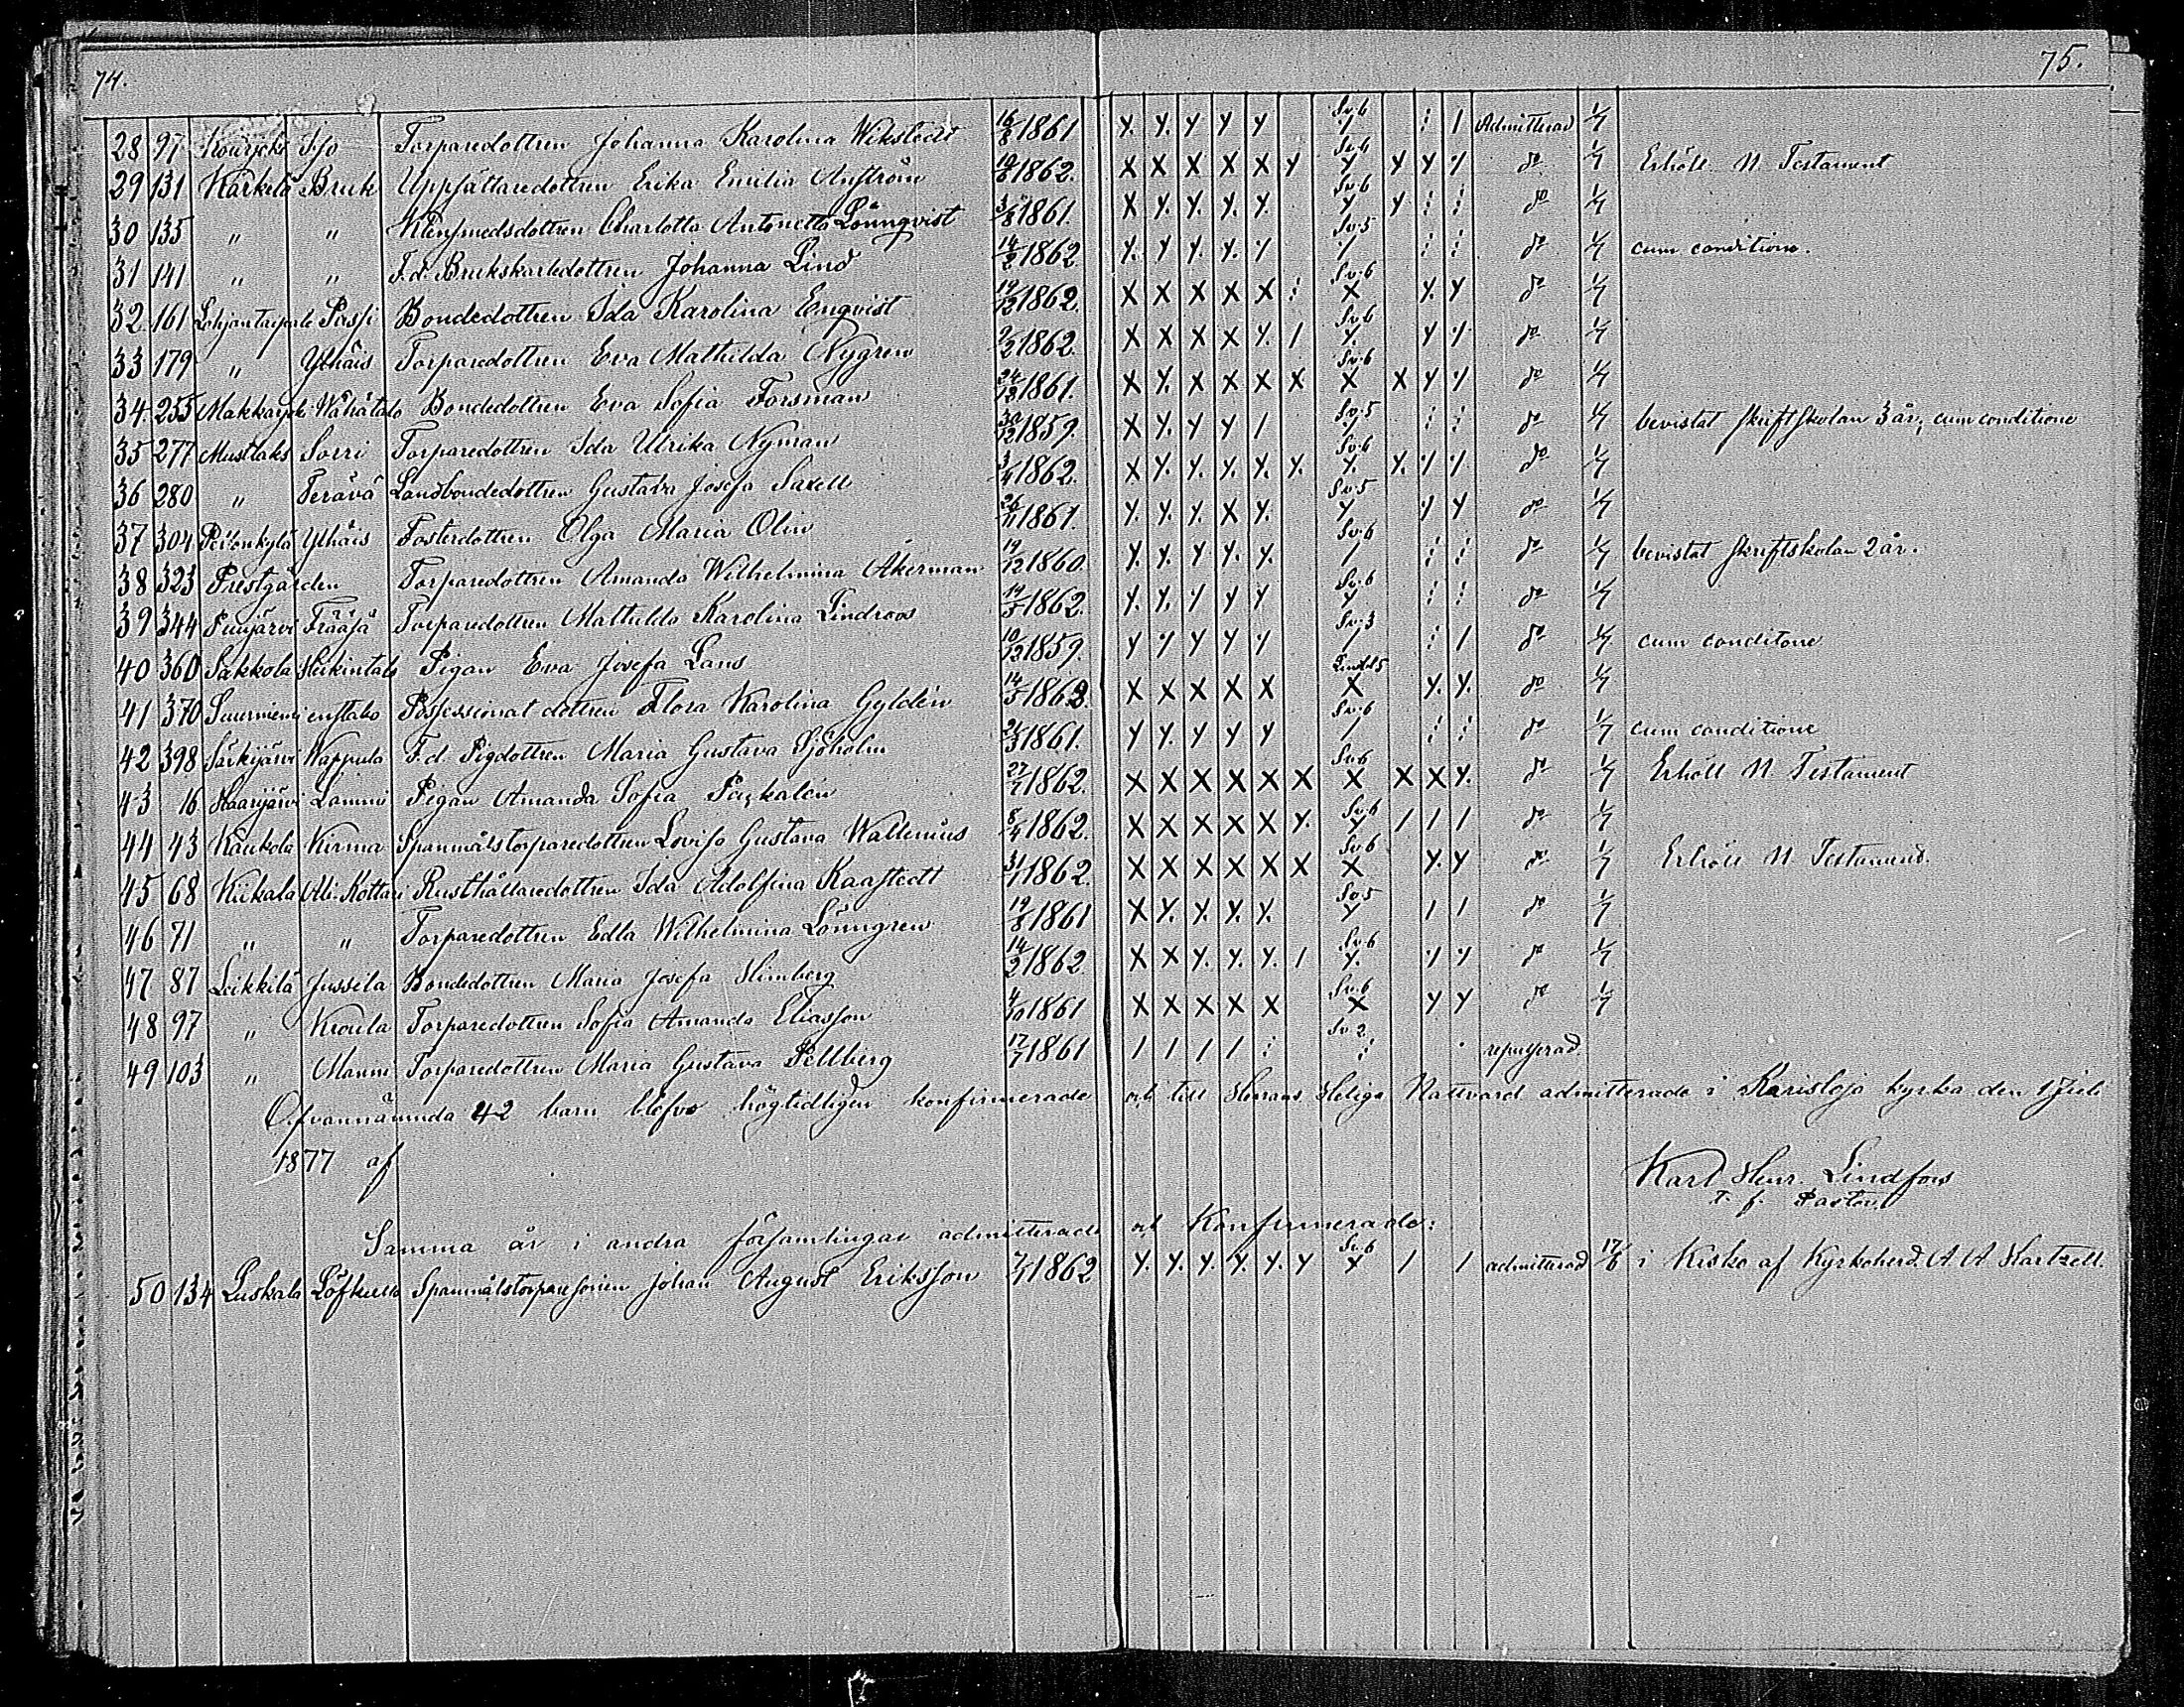 74. 75.
28 97 Isso Torparedottren Johanna Karolina Wikstedt 16/8 1861 Y. Y. Y Y Y Sv. 6 Y : / Admitterad 1/7
29 131 Kärkelä Bruk Uppsättaredottren Erika Emilia Anström 19/8 1862. X X X X X Y Sv. 6 Y Y Y Y do 1/7 Erhöll N. Testament
30 135 " " Klensmedsdottren Charlotta Antonetta Lönnqvist 3/8 1861. X Y. Y. Y. Y. Sv. 6 Y Y : : do 1/7
31 141 " " F.d. Brukskarledottren Johanna Lind 14/2 1862 Y. Y Y. Y. Y Sv. 5 / : : do 1/7 cum conditione.
32. 161 Lohjantaipale Passi Bondedottren Ida Karolina Enqvist 19/12 1862. X X X X X : Sv. 6 X Y. Y do 1/7
33 179 " Ylhäis Torparedottren Eva Mathilda Nygren 2/2 1862. X X X X Y. / Sv. 6 Y. Y Y do 1/7
34. 255 Makkarjoki Wähätalo Bondedottren Eva Sofia Forsman 24/12 1861. X Y. X X X X Sv. 6 X X Y Y do 1/7
35 277 Mustlaks Sorri Torparedottren Ida Ulrika Nyman 30/12 1859. X Y. Y Y / Sv. 5 / : : do 1/7 bevistat skriftskolan 3 år, cum conditione
36 280 " Terävä Landbondedottren Gustava Josefa Saxell 3/4 1862. X Y. Y. Y. Y. Y. Sv. 6 Y. Y. Y Y do 1/7
37 304 Pitkänkylä Ylhäis Fosterdottren Olga Maria Olin 26/11 1861. Y. Y. Y. X Y. Sv. 5 Y Y Y do 1/7
38 323 Prestgården Torparedottren Amanda Wilhelmina Åkerman 19/12 1860. Y. Y. Y. Y. Y. Sv. 6 / : : do 1/7 bevistat skriftskolan 2 år.
39 344 Puujärvi Frääjä Torparedottren Mathilda Karolina Lindroos 19/5 1862. Y. Y. Y Y Y Sv. 6 Y : : do 1/7
40 360 Sakkola Heikintalo Pigan Eva Josefa Lans 10/12 1859. Y Y Y Y Y Sv. 3 / : / do 1/7 cum conditone
41 370 Suurniemi enstaka Possessionat dottren Flora Karolina Gyldén 14/5 1862. X X X X X X Y. Y. do 1/7
42 398 Särkijärvi Wappula F.d. Pigdottren Maria Gustava Sjöholm 21/3 1861. Y Y. Y Y Y Sv. 6 / : : do 1/7 cum conditione
43 16 Haarijärvi Lammi Pigan Amanda Sofia 27/7 1862. X X X X X X Sv. 6 X X X Y. do 1/7 Erhöll N Testament
44 43 Kaukola Kirma Spanmålstorparedottren Lovisa Gustava Wallenius 8/4 1862. X X X X X Y. Sv. 6 Y / / / do 1/7
45 68 Kiikala Ali-Kottari Rusthållaredottren Ida Adolfina Kaastedt 31/1 1862. X X X X X X Sv. 6 X Y. Y do 1/7 Erhöll N Testament.
46 71 " " Torparedottren Edla Wilhelmina Lönngren 19/8 1861 X Y. Y. Y. Y. Sv. 5 Y / / do 1/7
47 87 Leikkilä Jussila Bondedottren Maria Josefa Himberg 14/2 1862 X X Y. Y. Y. / Sv. 6 Y. Y Y do 1/7
48 97 " Kroula Torparedottren Sofia Amanda Eliasson 4/10 1861 X X X X X Sv. 6 X Y Y do 1/7
49 103 " Manni Torparedottren Maria Gustava Pellberg 17/7 1861 / / / / : Sv 2 : . repuserad
Ofvannämnda 42 barn blefvo högtidligen konfirmerade och till Herrans Heliga Nattvard admitterade i Karislojo kyrka den 1 Juli
1877 af
Karl Henr. Lindfors
T. f. Pastor.
Samma år i andra församlingar admitterade och Konfirmerade:
50 134 Luskala Löfkulla Spanmålstorparesonen Johan August Eriksson 7/1 1862 Y. Y. Y. Y. Y. Y Sv. 6 Y / / admitterad 17/6 i Kisko af Kyrkoherd. A A Hartzell.